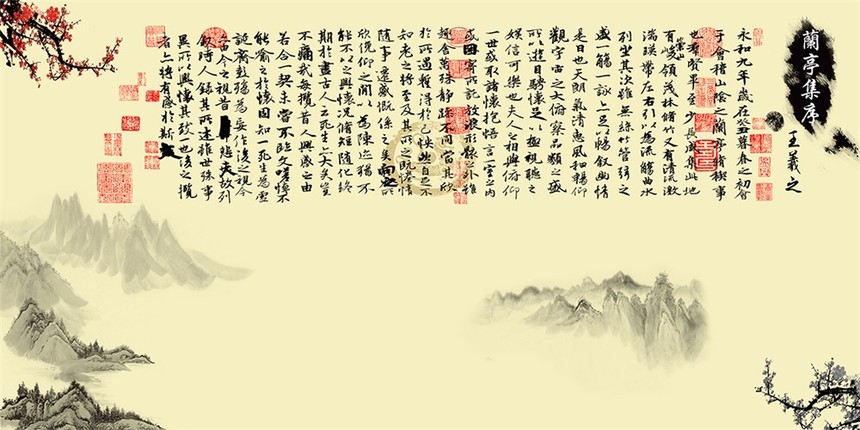 蘭亭集序
王羲之
永和九年歲在癸丑暮春之初會
于會稽山陰之蘭亭脩稧事
也羣賢畢至少長咸集此地
有崇山峻領茂林脩竹又有清流激
湍暎帶左右引以為流觴曲水
列坐其次雖無絲竹管弦之
盛一觴一詠亦足以暢敘幽情
是日也天朗氣清惠風和暢仰
觀宇宙之大俯察品類之盛
所以遊目騁懷足以極視聽之
娛信可樂也夫人之相與俯仰
一世或取諸懷抱悟言一室之內
或因寄所託放浪形骸之外雖
趣舍萬殊靜躁不同當其欣
於所遇蹔得於己怏然自足不
知老之將至及其所之既惓情
隨事遷感慨係之矣向之所
欣俛仰之閒以為陳迹猶不
能不以之興懷況脩短隨化終
期於盡古人云死生亦大矣豈
不痛哉每攬昔人興感之由
若合一契未嘗不臨文嗟悼不
能喻之於懷固知一死生為虛
誕齊彭殤為妄作後之視今
亦由今之視昔悲夫故列
敘時人錄其所述雖世殊事
異所以興懷其致一也後之攬
者亦將有感於斯文